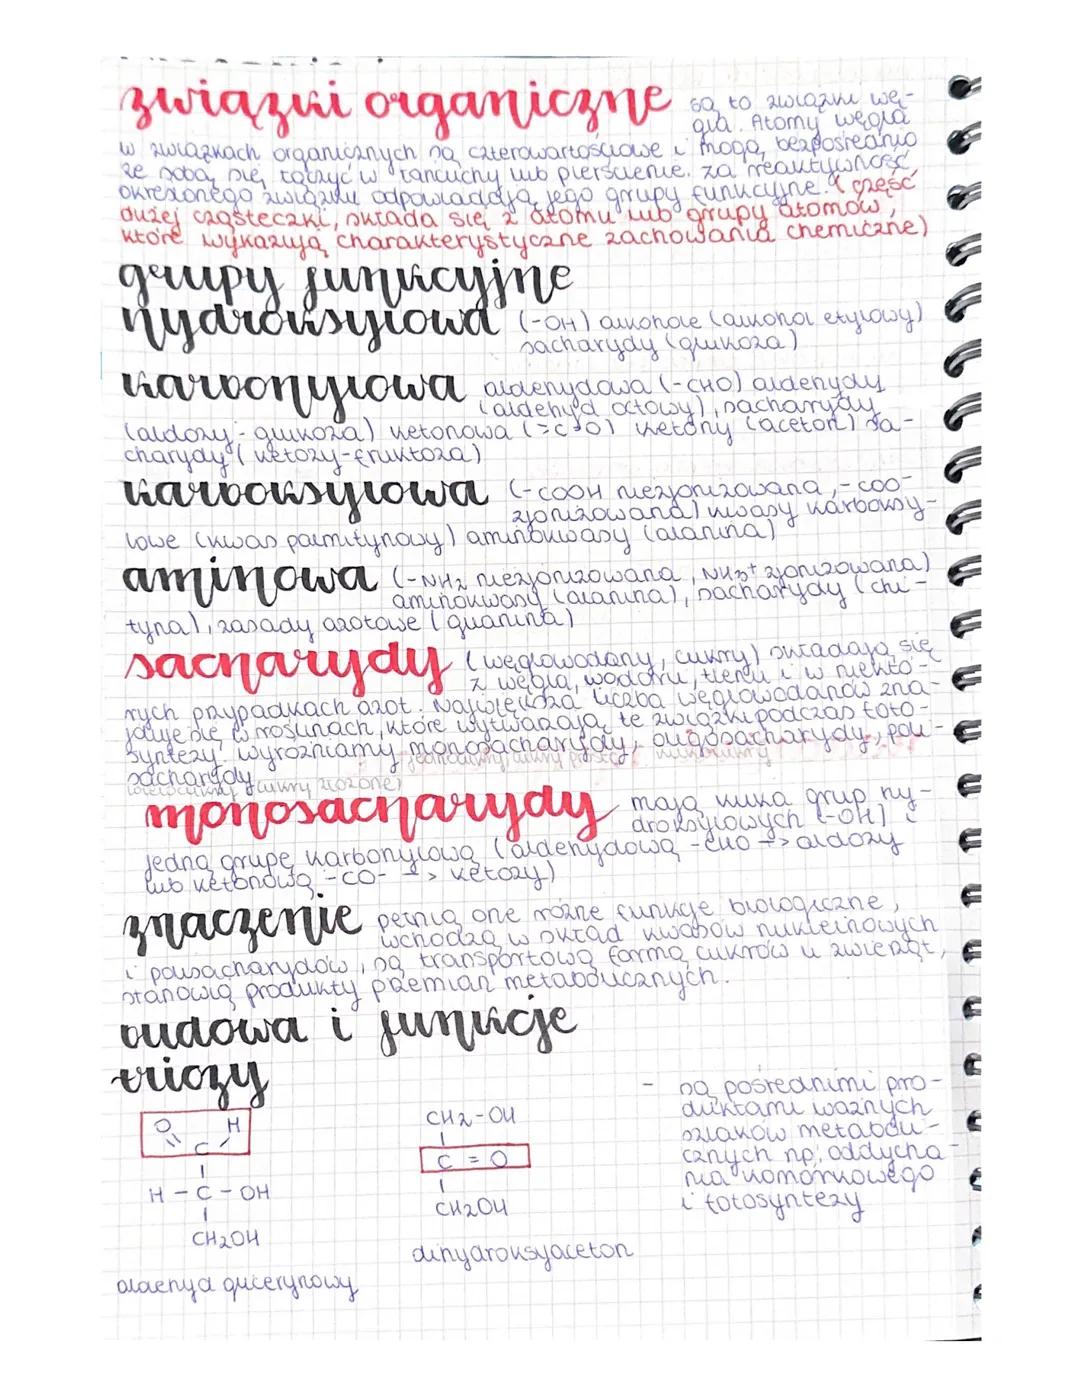 związki organiczne są to związki wę-
gla. Atomy węgla
w związkach organicznych są czterowartościowe i mogą bezpośrednio
ze sobą się łączyć w łańcuchy lub pierścienie. za reaktywność
określonego związku odpowiadają jego grupy funkcyjne. (część
dużej cząsteczki, składa się z atomu lub grupy atomów,
które wykazują charakterystyczne zachowania chemiczne)
grupy funkcyjne
hydroksylowa (-OH) alkohole (alkohol etylowy)
sacharydy (glukoza)
karbonylowa aldehydowa (-CHO) aldehydy
(aldehyd octowy), sacharydy
(aldozy - glukoza) ketonowa (>C=O) ketony (aceton) sa-
charydy (ketozy-fruktoza)
karboksylowa (-COOH niezjonizowana, -COO-
zjonizowana) kwasy karboksy-
lowe (kwas palmitynowy) aminokwasy (alanina)
aminowa (-NH2 niezjonizowana, NH3+ zjonizowana)
aminokwasy (alanina), sacharydy (chi-
tyna), zasady azotowe (guanina)
sacharydy (węglowodany, cukry) składają się
z węgla, wodoru, tlenu i w niektó-
rych przypadkach azot. Największa liczba węglowodanów zna-
jduje się w roślinach, które wytwarzają te związki podczas foto-
syntezy. wyróżniamy monosacharydy, oligosacharydy, poli-
jednocukry, cukry proste
sacharydy
wielocukry (cukry złożone)
monosacharydy mają kilka grup hy-
droksylowych (-OH) i
jedną grupę karbonylową (aldehydową -CHO -> aldozy
lub ketonową -CO- -> ketozy)
znaczenie pełnią one różne funkcje biologiczne,
wchodzą w skład kwasów nukleinowych
i polisacharydów, są transportową formą cukrów u zwierząt,
stanowią produkty przemian metabolicznych.
budowa i funkcje
triozy
- są pośrednimi pro-
duktami ważnych
szlaków metaboli-
cznych np; oddycha-
nia komórkowego
i fotosyntezy
O H
C
H - C - OH
CH2OH
aldehyd glicerynowy
CH2-OH
C = O
CH2OH
dihydroksyaceton